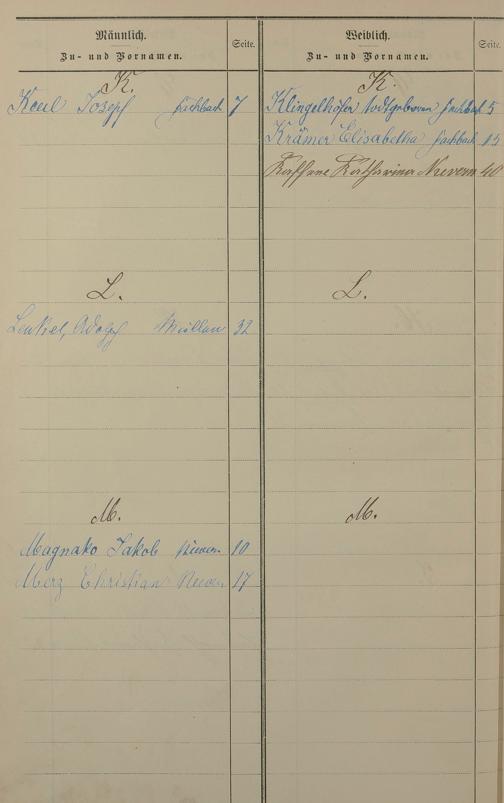 Männlich.
Zu- und Vornamen.
Seite.
K.
Keul Josepf Fachbach 7
L.
Lenkel, Adolf Miellen 32
M.
Magnako Jakob Nieven. 10
Merz Christian Nieven 17
Weiblich.
Zu- und Vornamen.
Seite.
K
Klingelhöfer todtgeboren Fachbach 5
Krämer Elisabetha Fachbach 15
Katharina Nievern 40
L.
M.